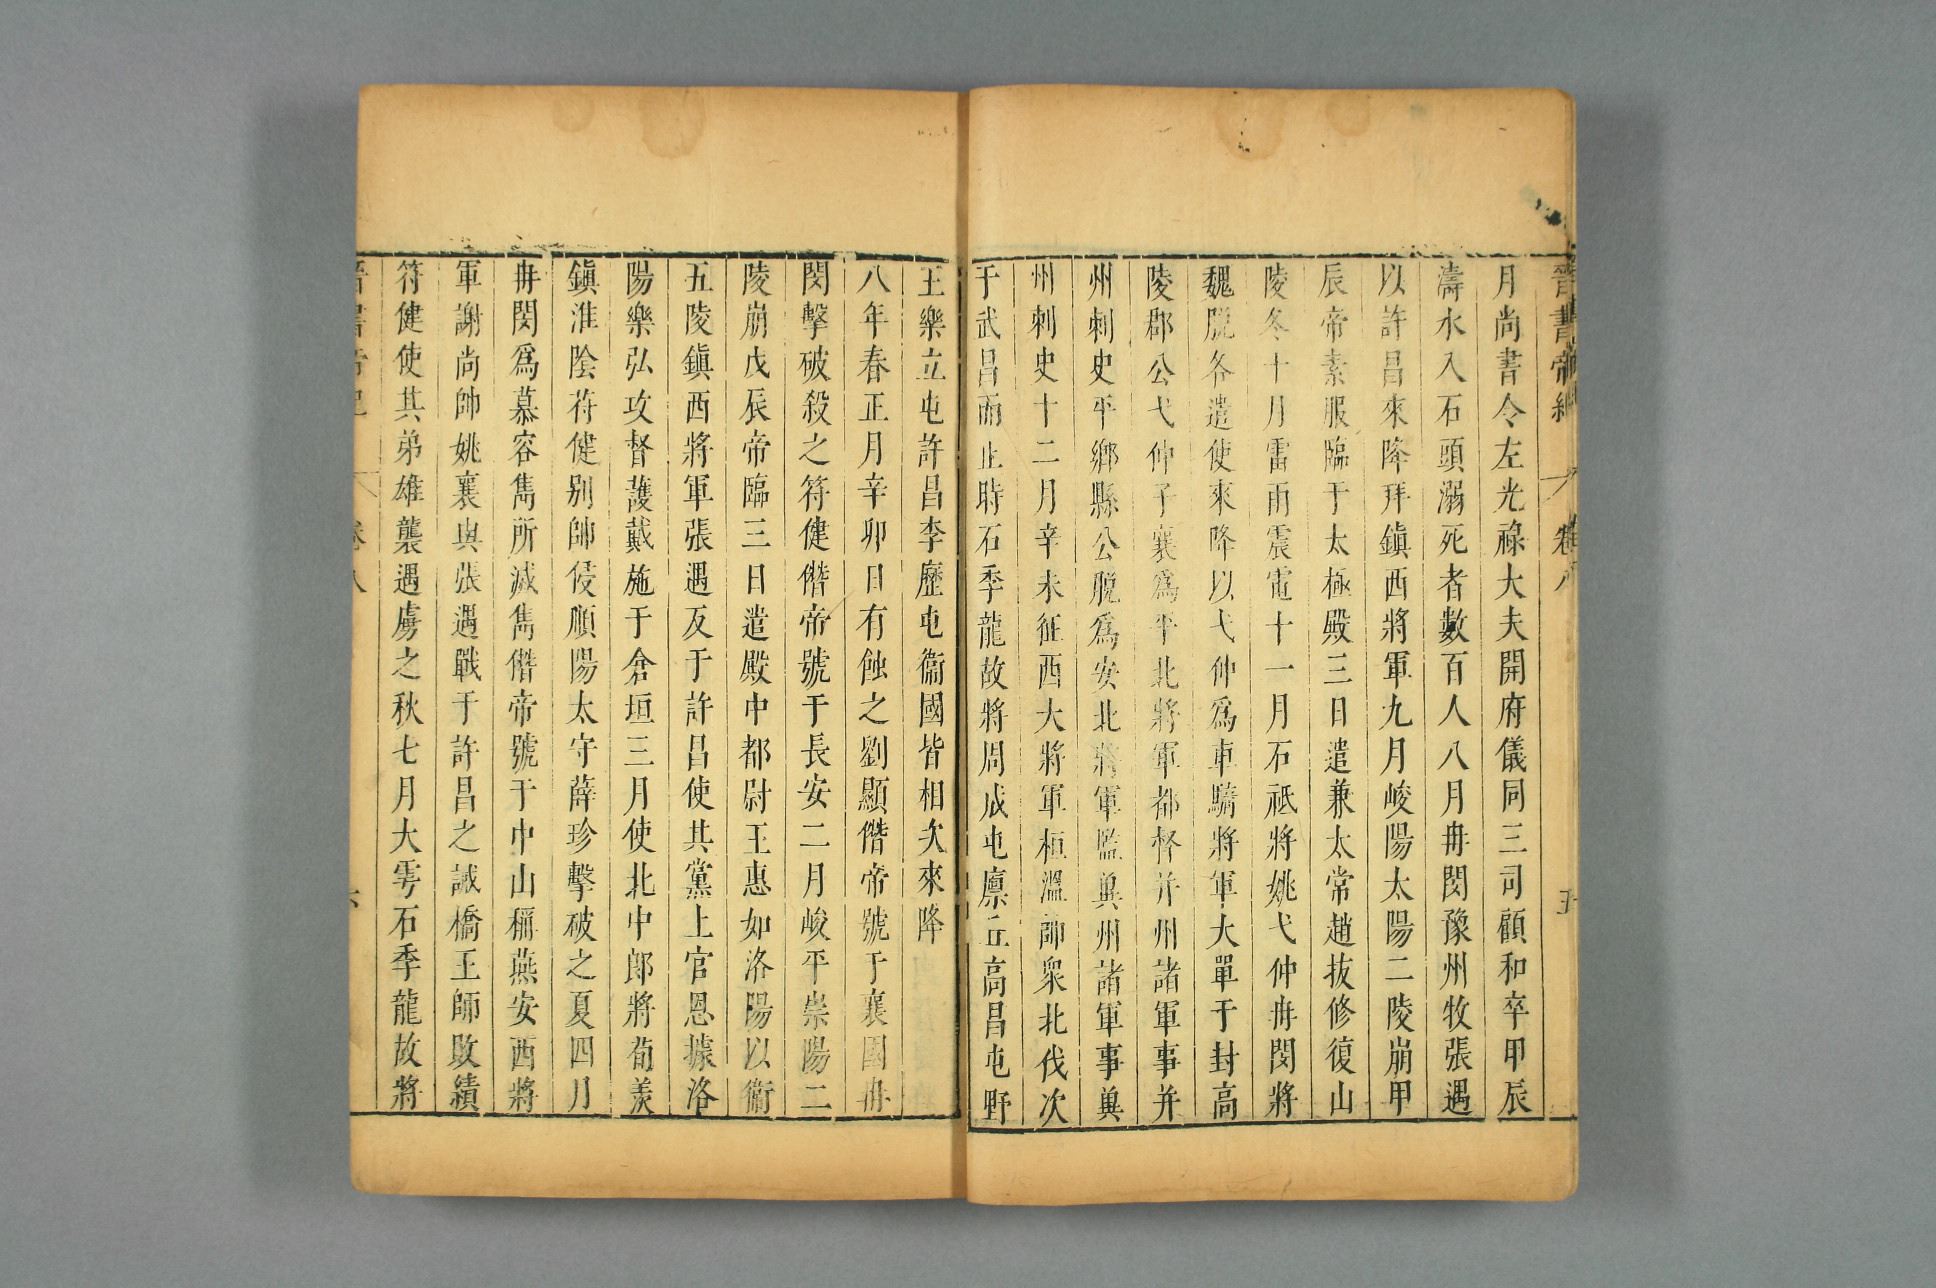 晉書帝紀 卷八 五
月尚書令左光祿大夫開府儀同三司顧和卒甲辰
濤水入石頭溺死者數百人八月冉閔豫州牧張遇
以許昌來降拜鎮西將軍九月峻陽太陽二陵崩甲
辰帝素服臨于太極殿三日遣兼太常趙拔修復山
陵冬十月雷雨震電十一月石祗將姚弋仲冉閔將
魏脫各遣使來降以弋仲爲車騎將軍大單于封高
陵郡公弋仲子襄爲平北將軍都督并州諸軍事并
州刺史平鄉縣公脫爲安北將軍監冀州諸軍事冀
州刺史十二月辛未征西大將軍桓溫帥衆北伐次
于武昌而止時石季龍故將周成屯廩丘高昌屯野
王樂立屯許昌李歷屯衞國皆相次來降
八年春正月辛卯日有蝕之劉顯僭帝號于襄國冉
閔擊破殺之苻健僭帝號于長安二月峻平崇陽二
陵崩戊辰帝臨三日遣殿中都尉王惠如洛陽以衞
五陵鎮西將軍張遇反于許昌使其黨上官恩據洛
陽樂弘攻督護戴施于倉垣三月使北中郎將荀羨
鎮淮陰苻健別帥侵順陽太守薛珍擊破之夏四月
冉閔爲慕容雋所滅雋僭帝號于中山稱燕安西將
軍謝尚帥姚襄與張遇戰于許昌之誡橋王師敗績
苻健使其弟雄襲遇虜之秋七月大雩石季龍故將
晉書帝紀 卷八 六